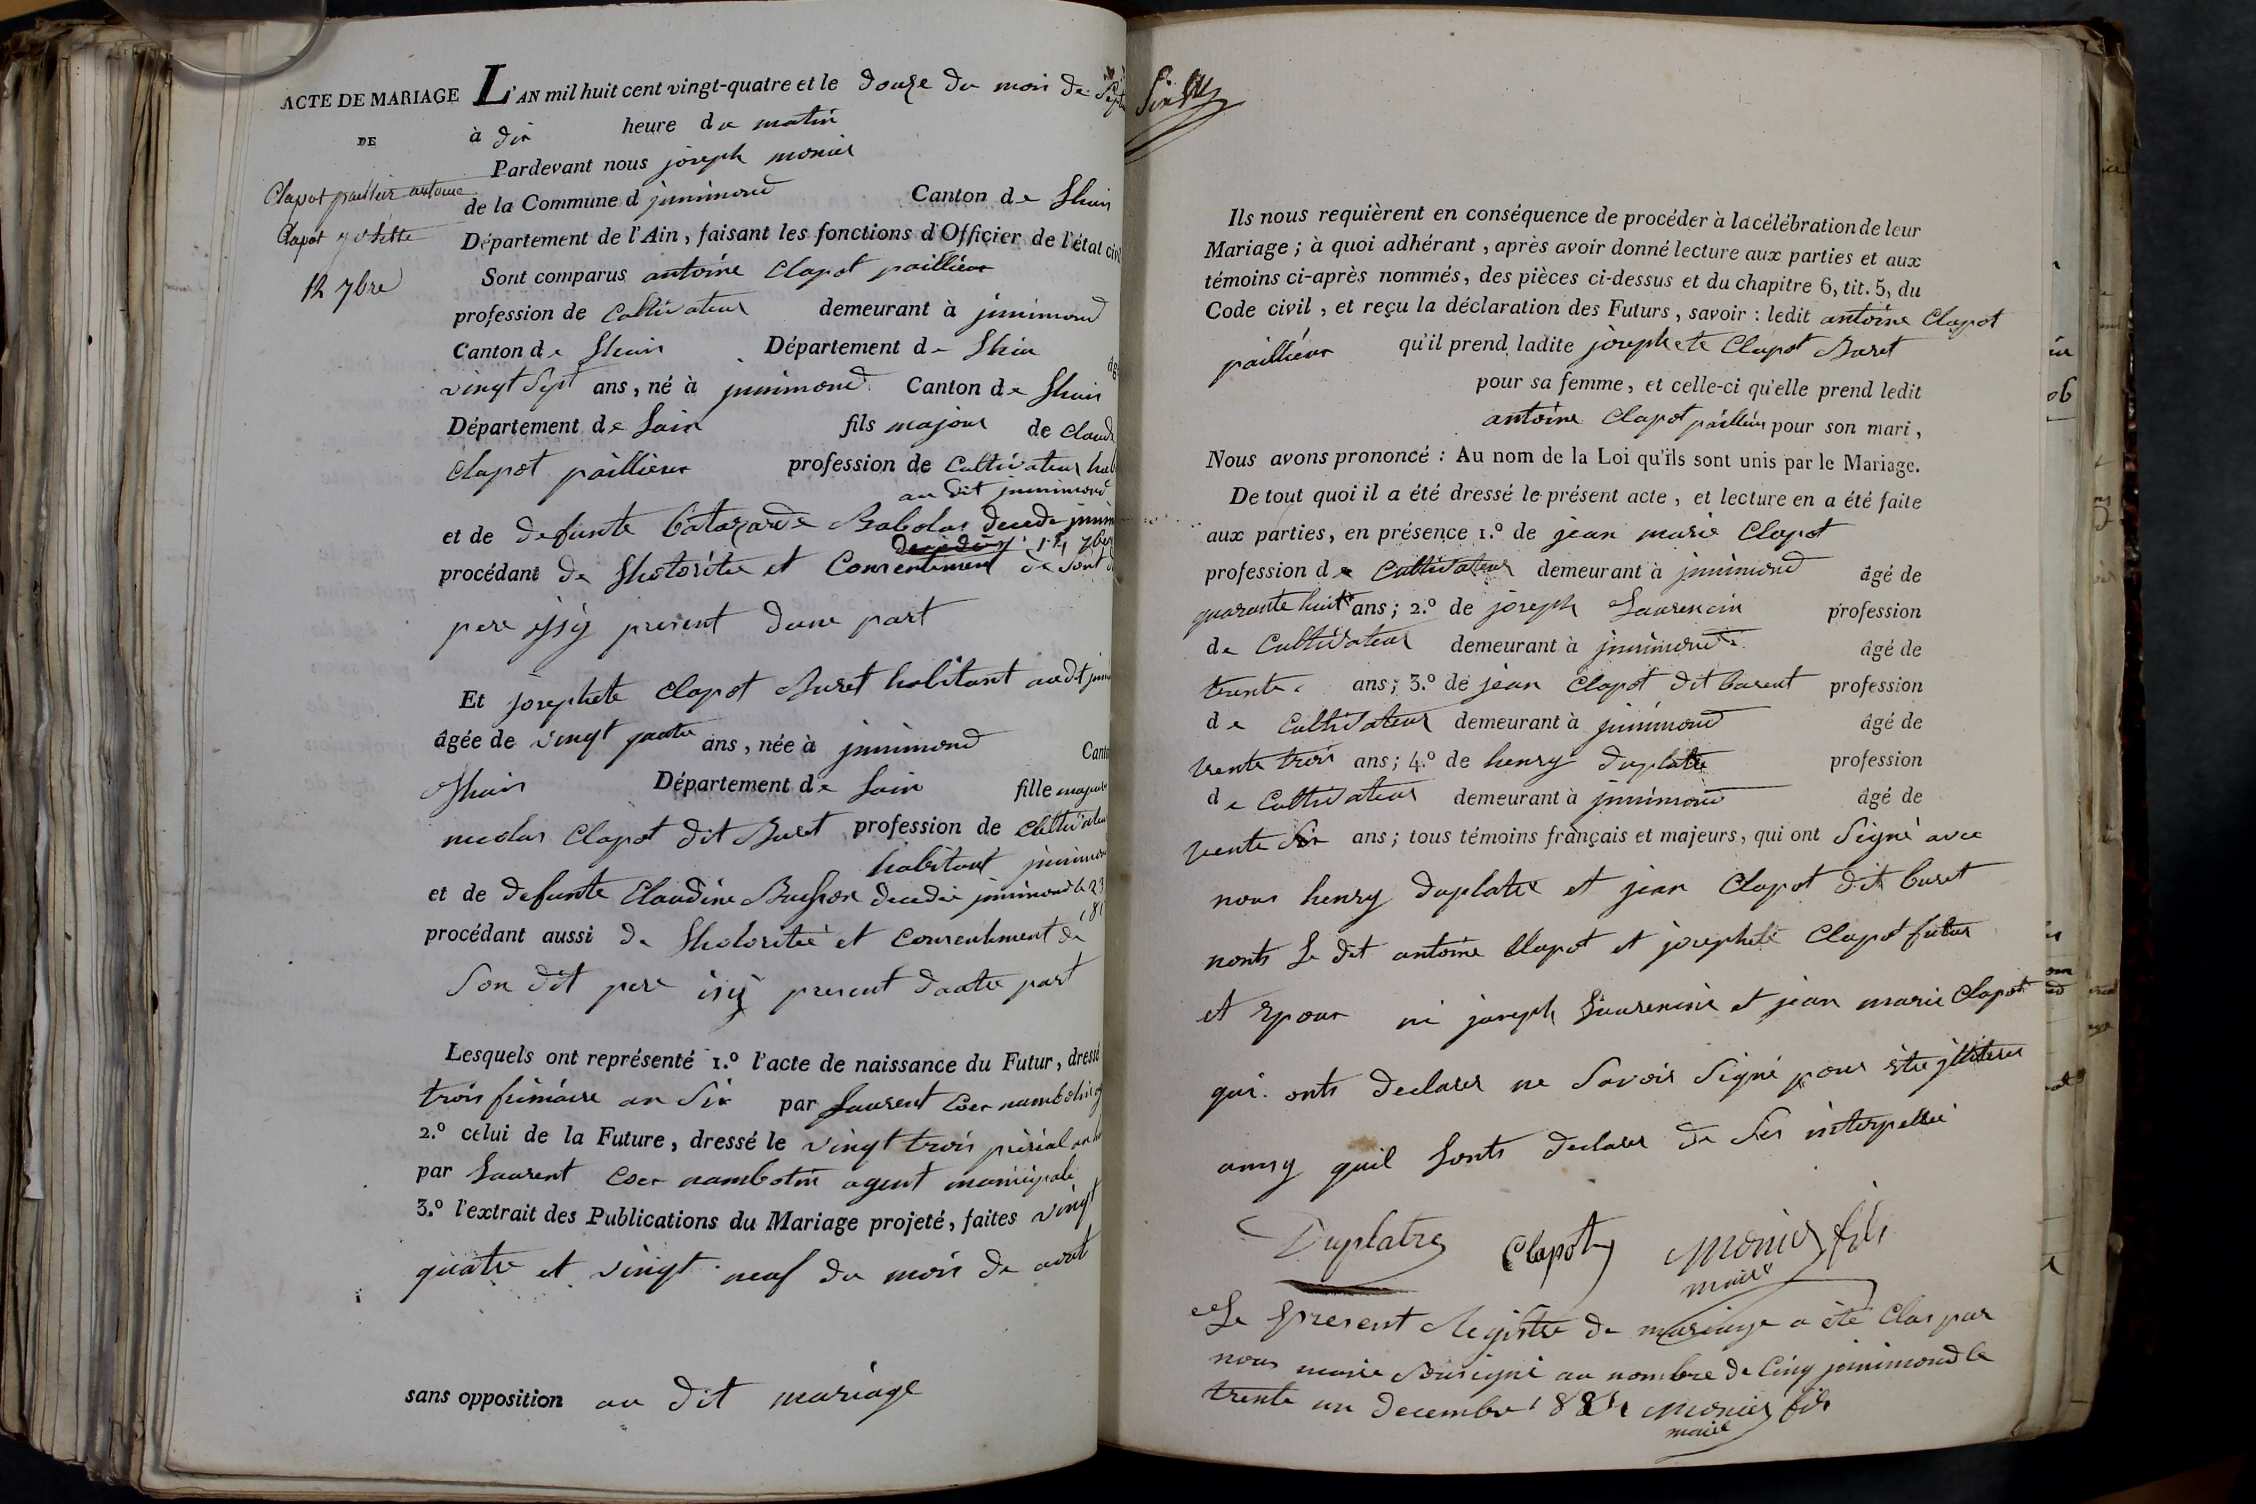 ACTE DE MARIAGE
DE
Clapot paillieur antoine
Clapot josette
12 7bre
L'AN mil huit cent vingt-quatre et le douze du mois de Septe
à dix heure du matin
Pardevant nous joseph monier
de la Commune d junimond Canton de Lhuis
Département de l'Ain, faisant les fonctions d'Officier de l'état civil
Sont comparus antoine Clapot paillieur
profession de Cultivateur demeurant à junimond
Canton de Lhuis Département de Lhin
vingt Sept ans, né à junimond Canton de Lhuis
Département de Lain fils majour de Claude
Clapot paillieur profession de Cultivateur hab
au dit junimond
et de defunte Balazarde Rabolas decede junim
14 7bre
procédant de Lhotoritee et Consentiment de Sont d
pere issy present dune part
Et josephete Clapot Buret habitant audt juni
âgée de vingt quatre ans, née à junimond Canto
Lhuis Département de Lain fille majeure
nicolas Clapot dit Buret profession de Cultivateur
habitant junimon
et de defunte Claudine decedée junimond le 23
181
procédant aussi de Lhotoritée et Consentiment de
Son dit pere issy present dautre part
Lesquels ont représenté 1.º l'acte de naissance du Futur, dressé
trois frimaire an Six par Laurent
2.º celui de la Future, dressé le vingt trois prérial an
par Laurent agent municipale
3.º l'extrait des Publications du Mariage projeté, faites vingt
quatre et vingt neuf du mois de aout
sans opposition au dit mariage
Ils nous requièrent en conséquence de procéder à la célébration de leur
Mariage; à quoi adhérant, après avoir donné lecture aux parties et aux
témoins ci-après nommés, des pièces ci-dessus et du chapitre 6, tit. 5, du
Code civil, et reçu la déclaration des Futurs, savoir : ledit antoine Clapot
paillieur qu'il prend ladite josephete Clapot Buret
pour sa femme, et celle-ci qu'elle prend ledit
antoine Clapot paillieur pour son mari,
Nous avons prononcé : Au nom de la Loi qu'ils sont unis par le Mariage.
De tout quoi il a été dressé le présent acte, et lecture en a été faite
aux parties, en présence 1.º de jean marie Clapot
profession de Cultivateur demeurant à junimond âgé de
quarante huit ans; 2.º de joseph Laurencin profession
de Cultivateur demeurant à junimond âgé de
trente ans; 3.º de jean Clapot dit buret profession
de Cultivateur demeurant à junimond âgé de
trente trois ans; 4.º de henry duplatre profession
de Cultivateur demeurant à junimond âgé de
trente Six ans; tous témoins français et majeurs, qui ont Signé avec
nous henry duplatre et jean Clapot dit buret
nonts Le dit antoine Clapot et josephete Clapot futur
et Epoux ni joseph Laurencin et jean marie Clapot
qui onts declarer ne Savoir Signé pour être jlliterer
aunsy quil Lonts declarer de Ses interpellié
Duplatre Clapot monier fils
maire
Le present Registre de mariage a été Clos par
nous maire Sousigné au nombre de Cinq junimond le
trente un decembre 1824 monier fils
maire